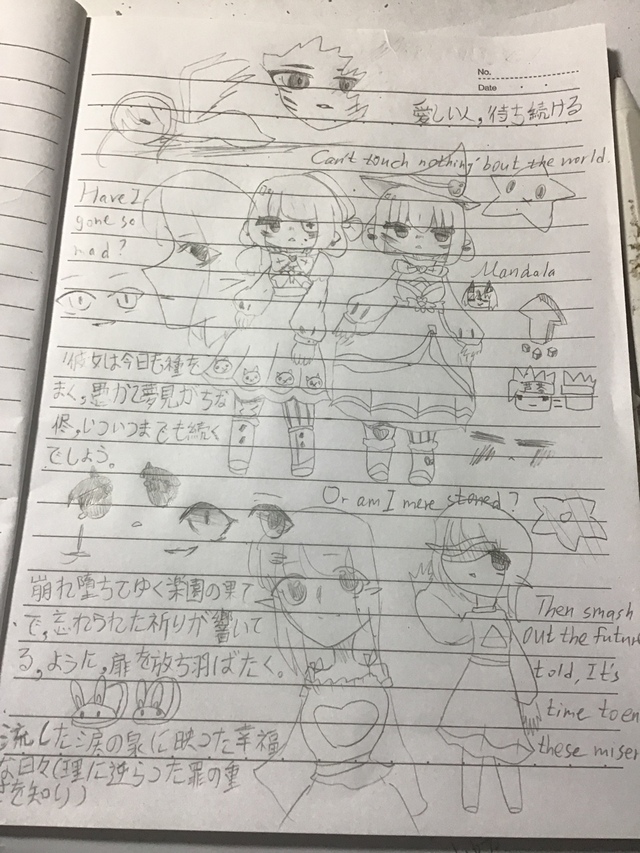 No.
Date
愛しい人,待ち続ける
Can't touch nothing 'bout the world.
Have I
gone so
mad?
Mandala
彼女は今日も種を
まく,愚かで夢見がちな
いついつまでも続く
でしょう。
Or am I mere stoned?
崩れ堕ちてゆく楽園の果て
で,忘れられた祈りが響いて
る,ようた,扉を放ち羽ばたく。
Then smash
out the futur
told, It's
time to en
these miser
流した涙の泉に映った幸福
な日々(理に逆らった罪の重
さを知り)